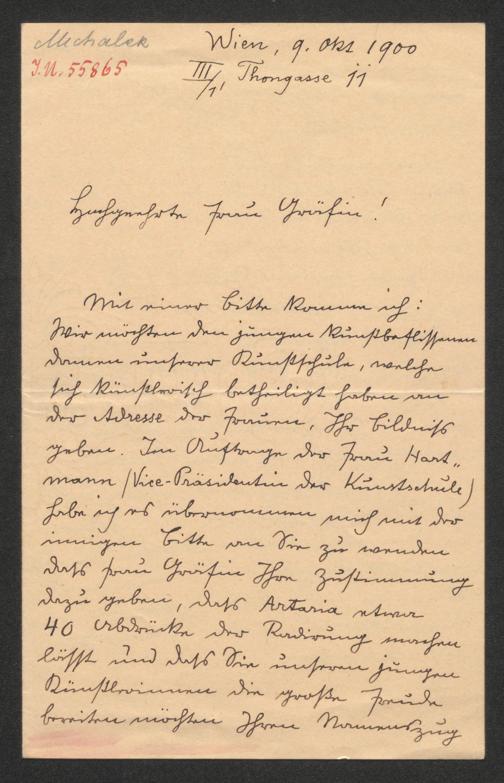 Michalek
I.N. 55865
Wien, 9. Okt 1900
III/1, Thongasse 11
Hochgeehrte Frau Gräfin!
Mit einer Bitte komme ich:
Wir möchten den jungen kunstbeflissenen
Damen unserer Kunstschule, welche
sich künstlerisch betheiligt haben an
der Adresse der Frauen, Ihr Bildniss
geben. Im Auftrage der Frau Hart„
mann (Vice-Präsidentin der Kunstschule)
habe ich es übernommen mich mit der
innigen Bitte an Sie zu wenden
dass Frau Gräfin Ihre Zustimmung
dazu geben, dass Artaria etwa
40 Abdrücke der Radirung machen
lässt und dass Sie unseren jungen
Künstlerinnen die große Freude
bereiten möchten Ihren Namenszug